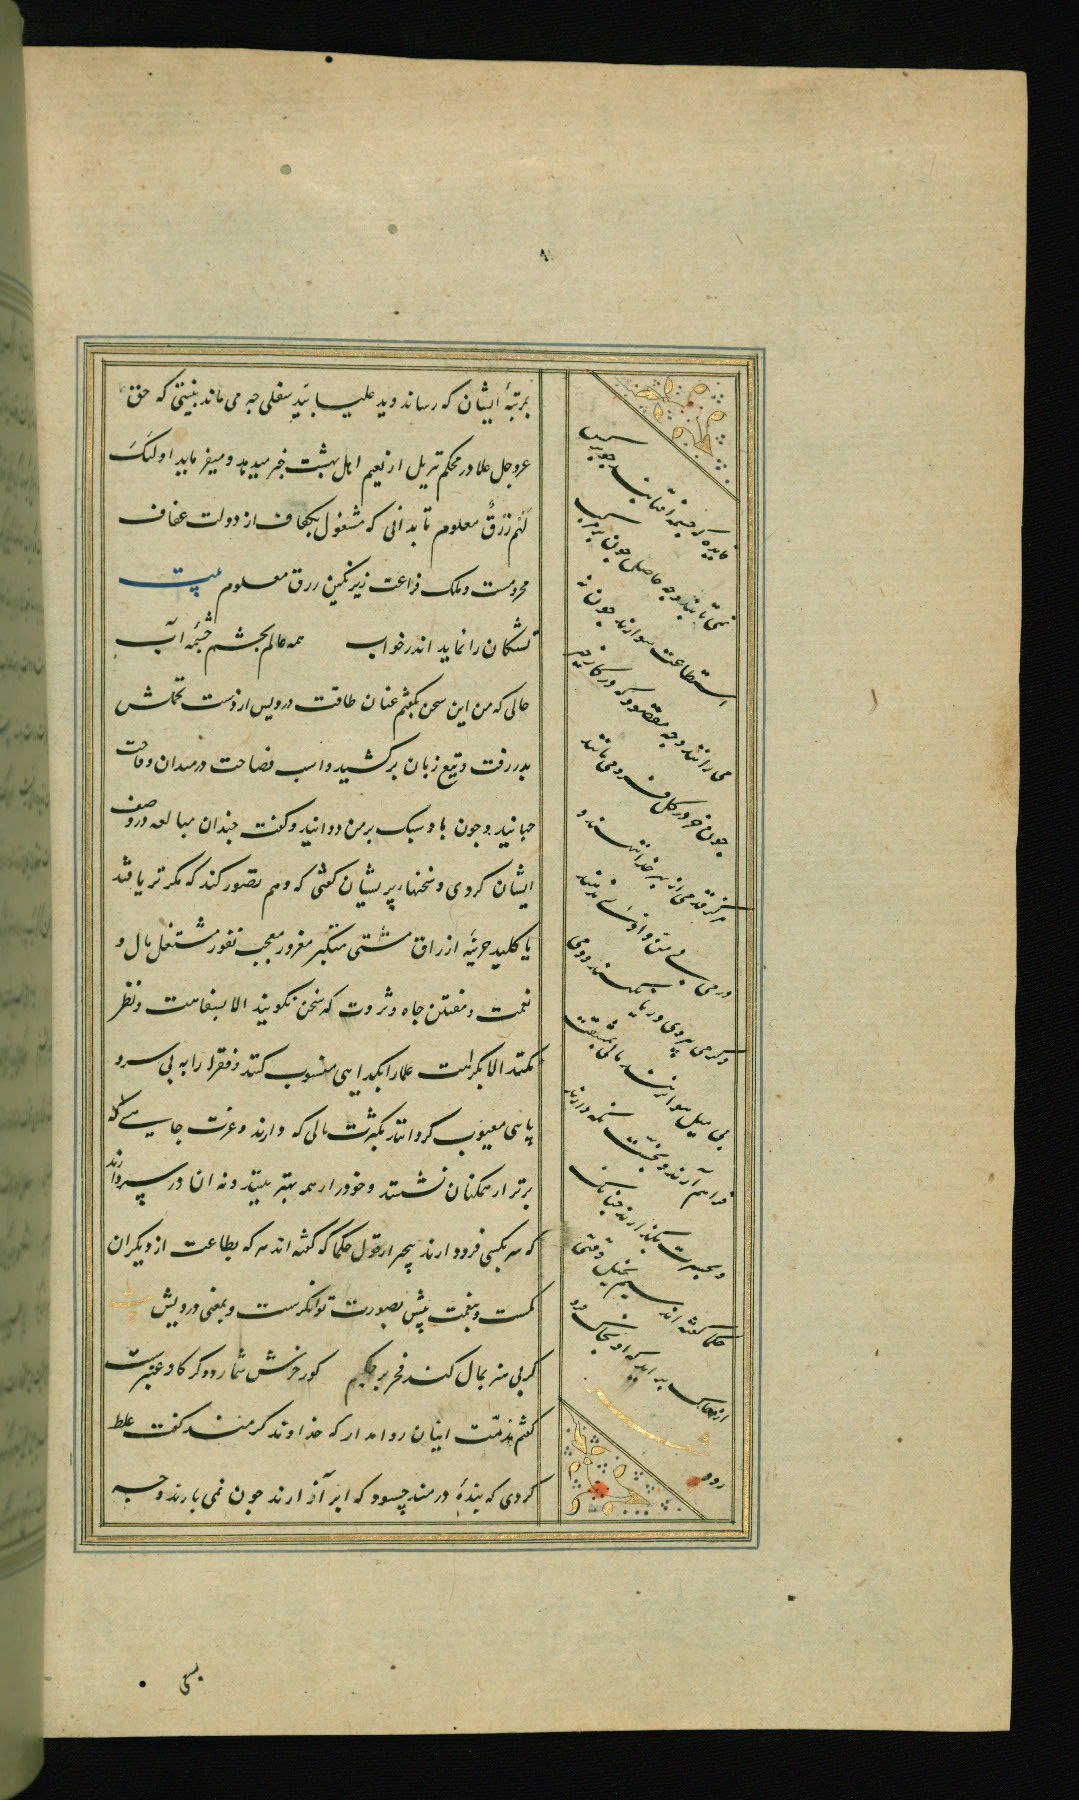 بمرتبهٔ ایشان که رساند وید علیا بید سفلی چه می ماند نبینی که حق
عزوجل علا در محکم تنزیل از نعیم اهل بهشت خبر میدهد و میفرماید اولئک
لَهُم رزقٌ معلوم تا بدانی که مشغول بکفاف از دولت عفاف
محرومست و ملک فراغت زیر نکین رزق معلوم بیت
تشنکان را نماید اندر خواب همه عالم بچشم چشمه آب
حالی که من این سخن بکفتم عنان طاقت درویش از دست تحملش
بدر رفت و تیغ زبان برکشید و اسب فصاحت در میدان وقاحت
جهانید و چون باد سبک بر من دوانید و کفت چندان مبالغه در وصف
ایشان کردی و سخنهاء پریشان کفتی که وهم تصور کند که مکر تریاقند
یا کلید خزینه ارزاق مشتی متکبر مغرور معجب نفور مشتغل مال و
نعمت و مفتتن جاه و ثروت که سخن نکویند الا بسفاهت و نظر
نکنند الا بکراهت علما را بکدایی منسوب کنند و فقرا را به بی سرو
پایی معیوب کردانند بکثرت مالی که دارند و عزت جاهیے که
برتر از همکنان نشستند و خود را از همه بهتر بینند و نه آن در سر دارند
که سر بکسی فرود آرند بیخبر از قول حکما که کفته اند هر که بطاعت از دیکران
کمست و بنعمت بیش بصورت توانکرست و بمعنی درویش
کر بی هنر بمال کند فخر بر حکیم کون خرش شمار وکر کاو عنبرست
کفتم مذمت اینان روا مدار که خداوند کرمند کفت غلط
کردی که بندهٔ درمند چسود که ابر آذارند چون نمی بارند و چه
فایده که چشمهٔ آفتابند چو بر کس
نمی تابند و چه حاصل چون بر مرکب
استطاعت سوارند چون نه
می رانند و چه مقصود که در کار خیر
چون خر در کل فرو می مانند
هرکز قدمی از بهر خدا ننهند و
درمی بی من و اذی ندهند
بی میل
فراهم آرند و بخست نکه دارند
و بحسرت بکذارند چنانک
حکما کفته اند سیم بخیل وقتی
از خاک برآید که او بخاک فرو
رود
بسعی